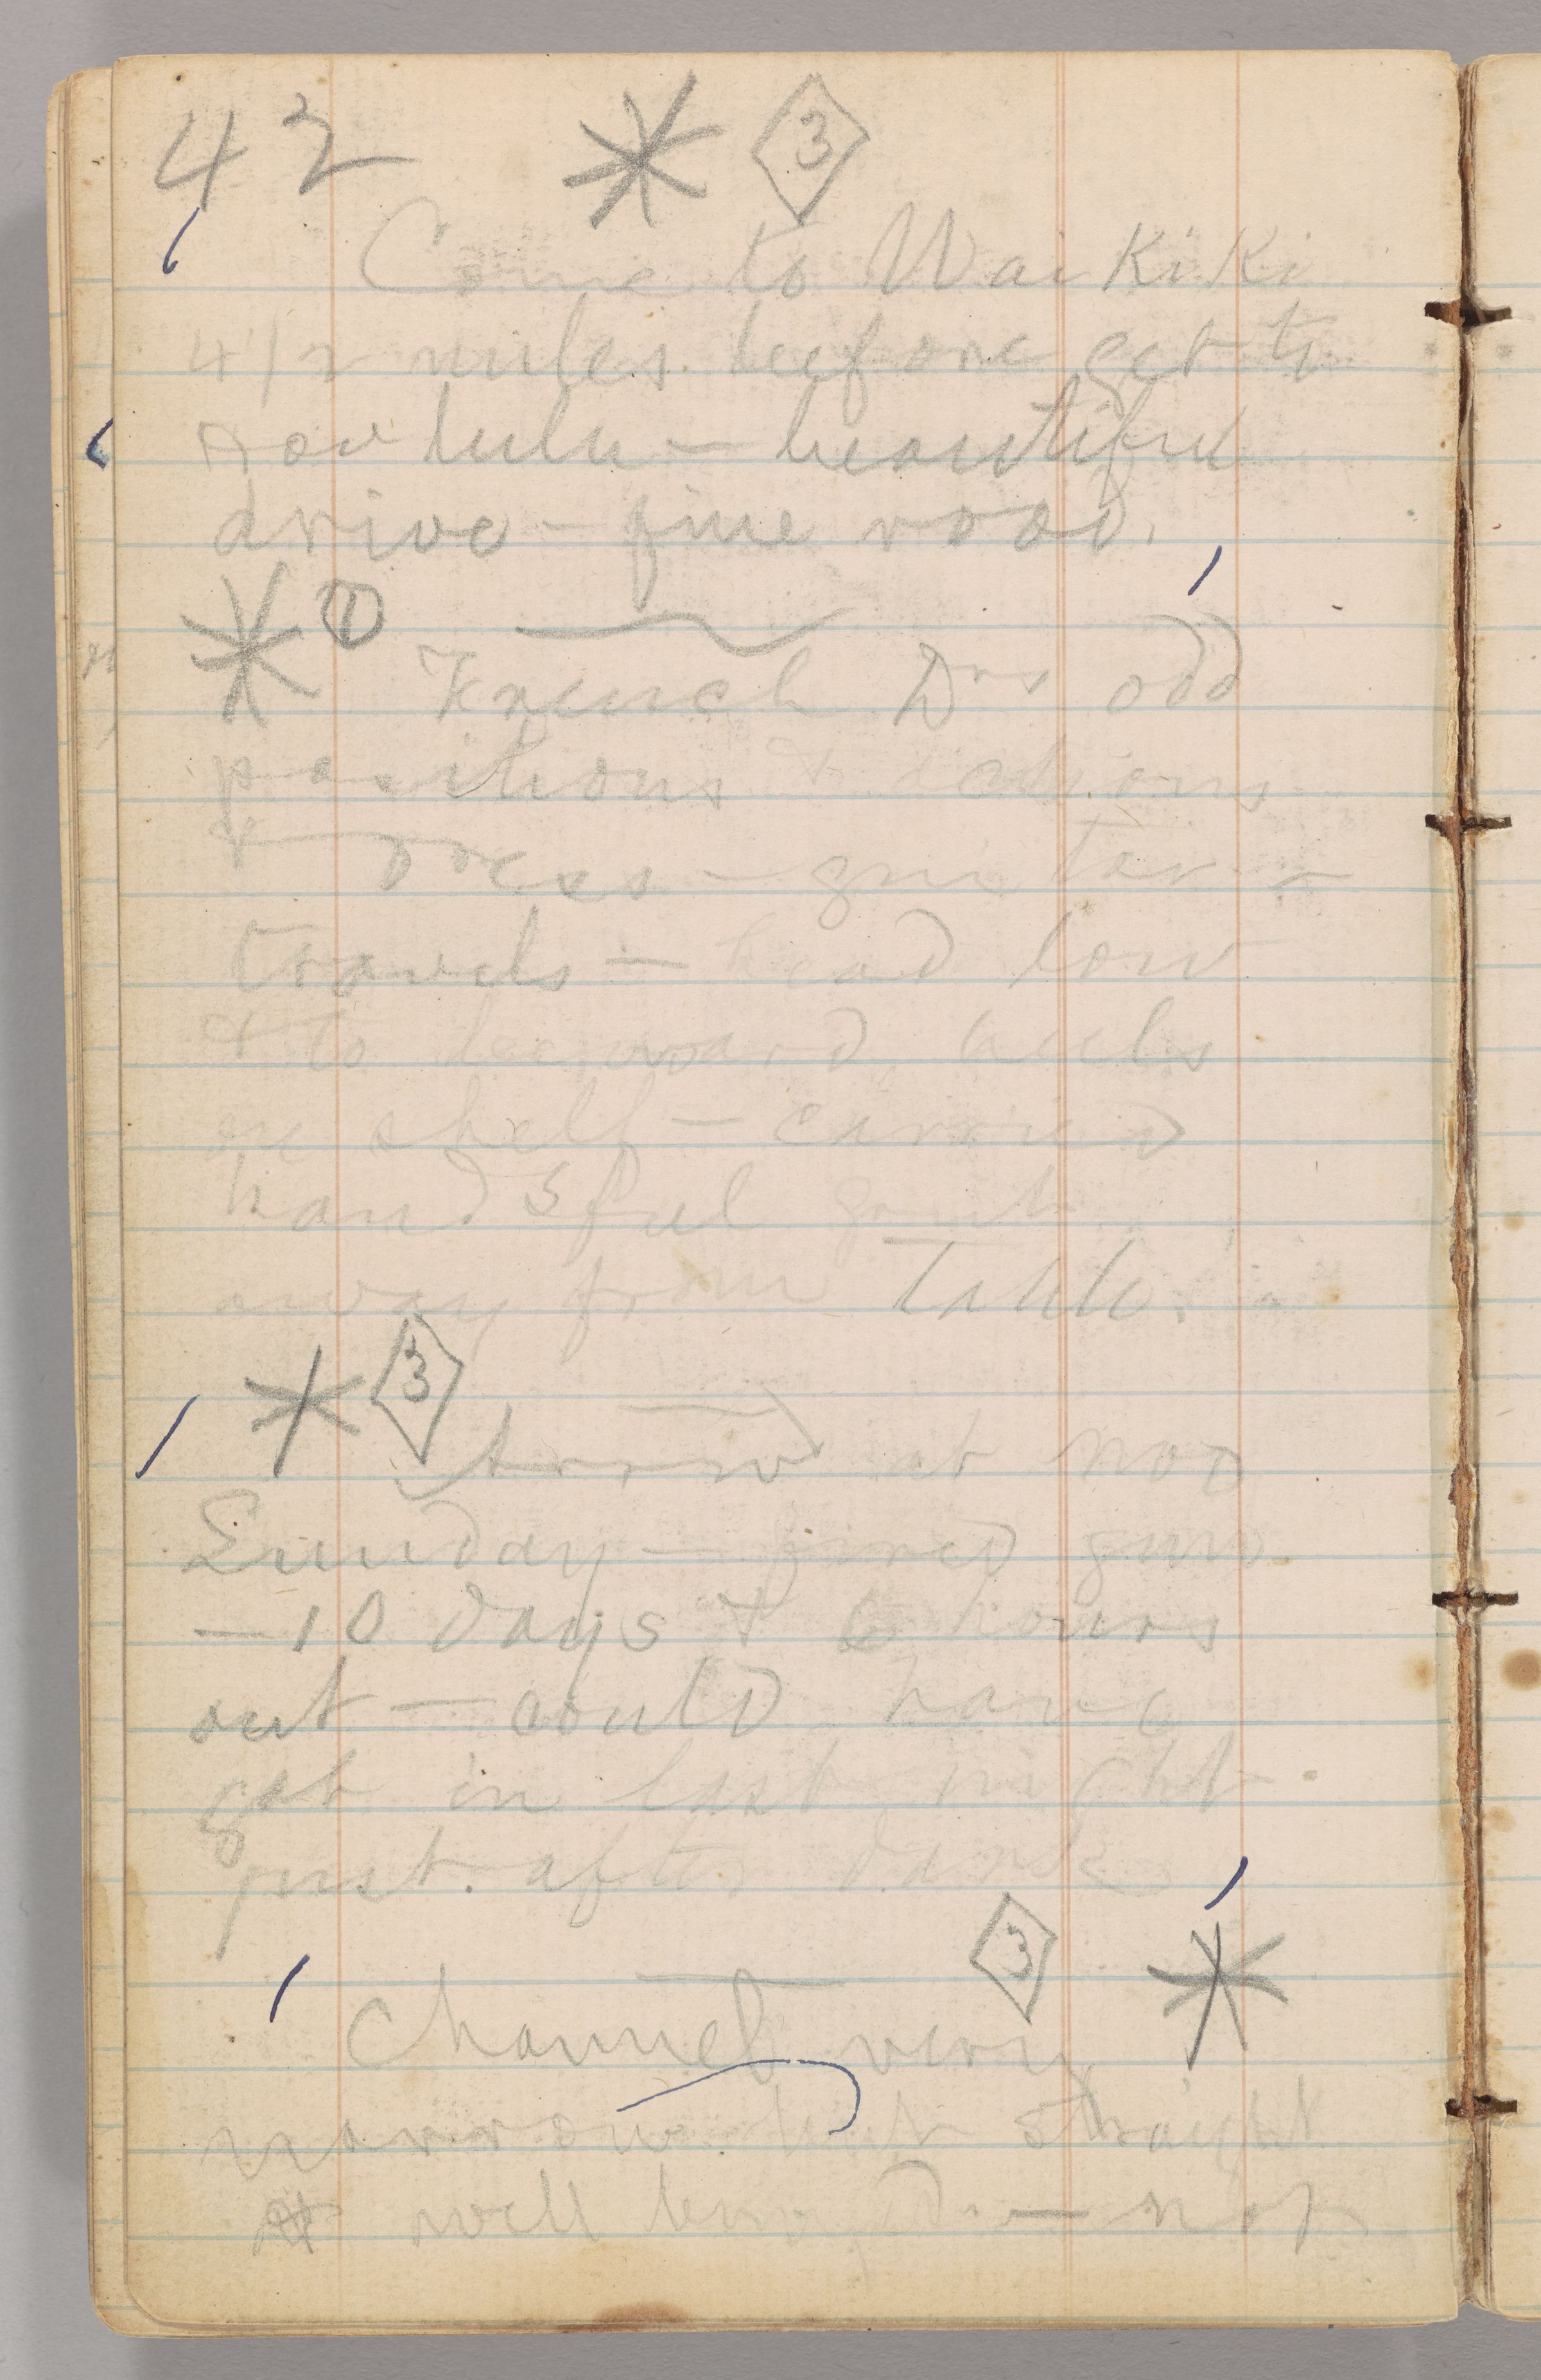 42 * 3
Come to Wai Ki Ki
4 1/2 miles before get to
Hou lulu — beautiful
drive — fine road.
* 1
French Drs odd
positions & actions
& dress — guitar —
travels — head low
& to leeward, heels
on shelf — carried
handsful
away from table.
* 3
Arrivd at noo
Sunday — fired guns
— 10 days & 6 hours
out — could have
got in last night
just after dark
3 *
Channel very
narrow but straight
& well buoyd. — not